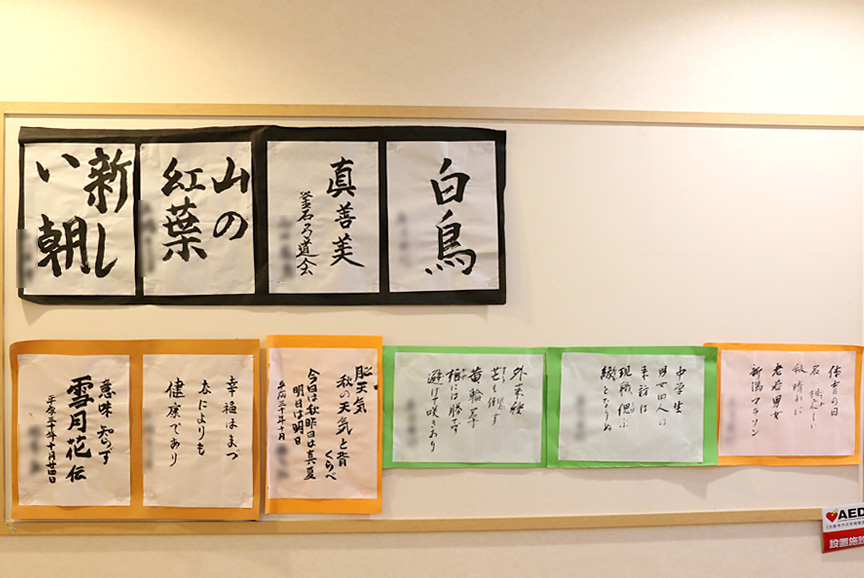 白鳥
真善美
釜石弓道会
山の
紅葉
新し
い朝
体育の日
秋晴れに
老若男女
新潟マラソン
中学生
男女四人の
手話は
現職偲ぶ
となりぬ
外来種
芒も倒す
黄輪草
には勝てず
避けて咲きおり
天気
秋の天気と背
くらべ
今日は秋昨日は真夏
明日は明日
平成三十年十月
幸福はまづ
なによりも
健康であり
意味知らず
雪月花伝
平成三十年十月廿四日
AED
設置施設